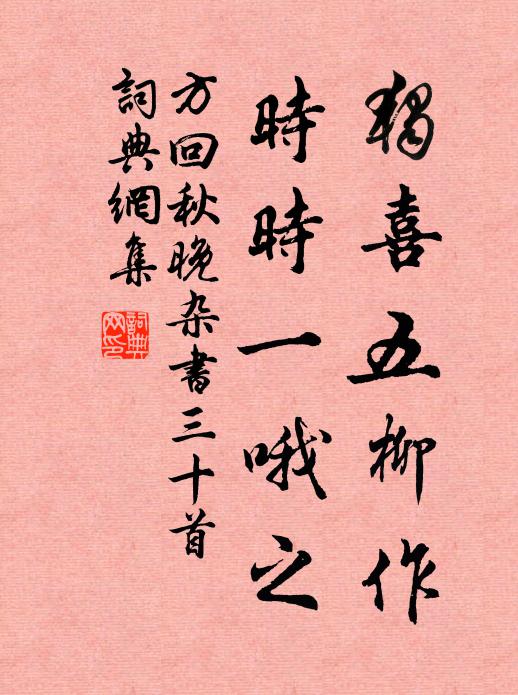 獨喜五柳作
時時一哦之
方回秋晚杂書三十首
詞典網集
詞典
网印